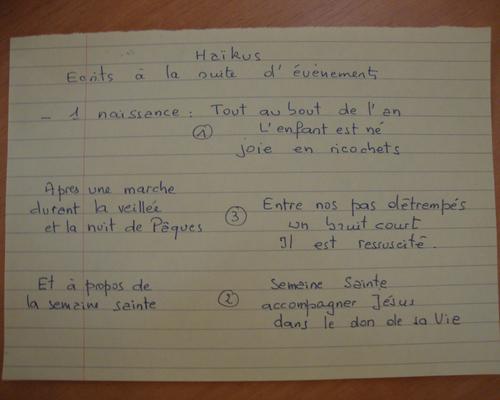 Haïkus
Ecrits à la suite d'évènements
- 1 naissance : Tout au bout de l'an
① L'enfant est né
joie en ricochets
Apres une marche
durant la veillée
et la nuit de Pâques
③ Entre nos pas détrempés
un bruit court
Il est ressuscité.
Et à propos de
la semaine sainte
② Semaine Sainte
accompagner Jésus
dans le don de sa Vie